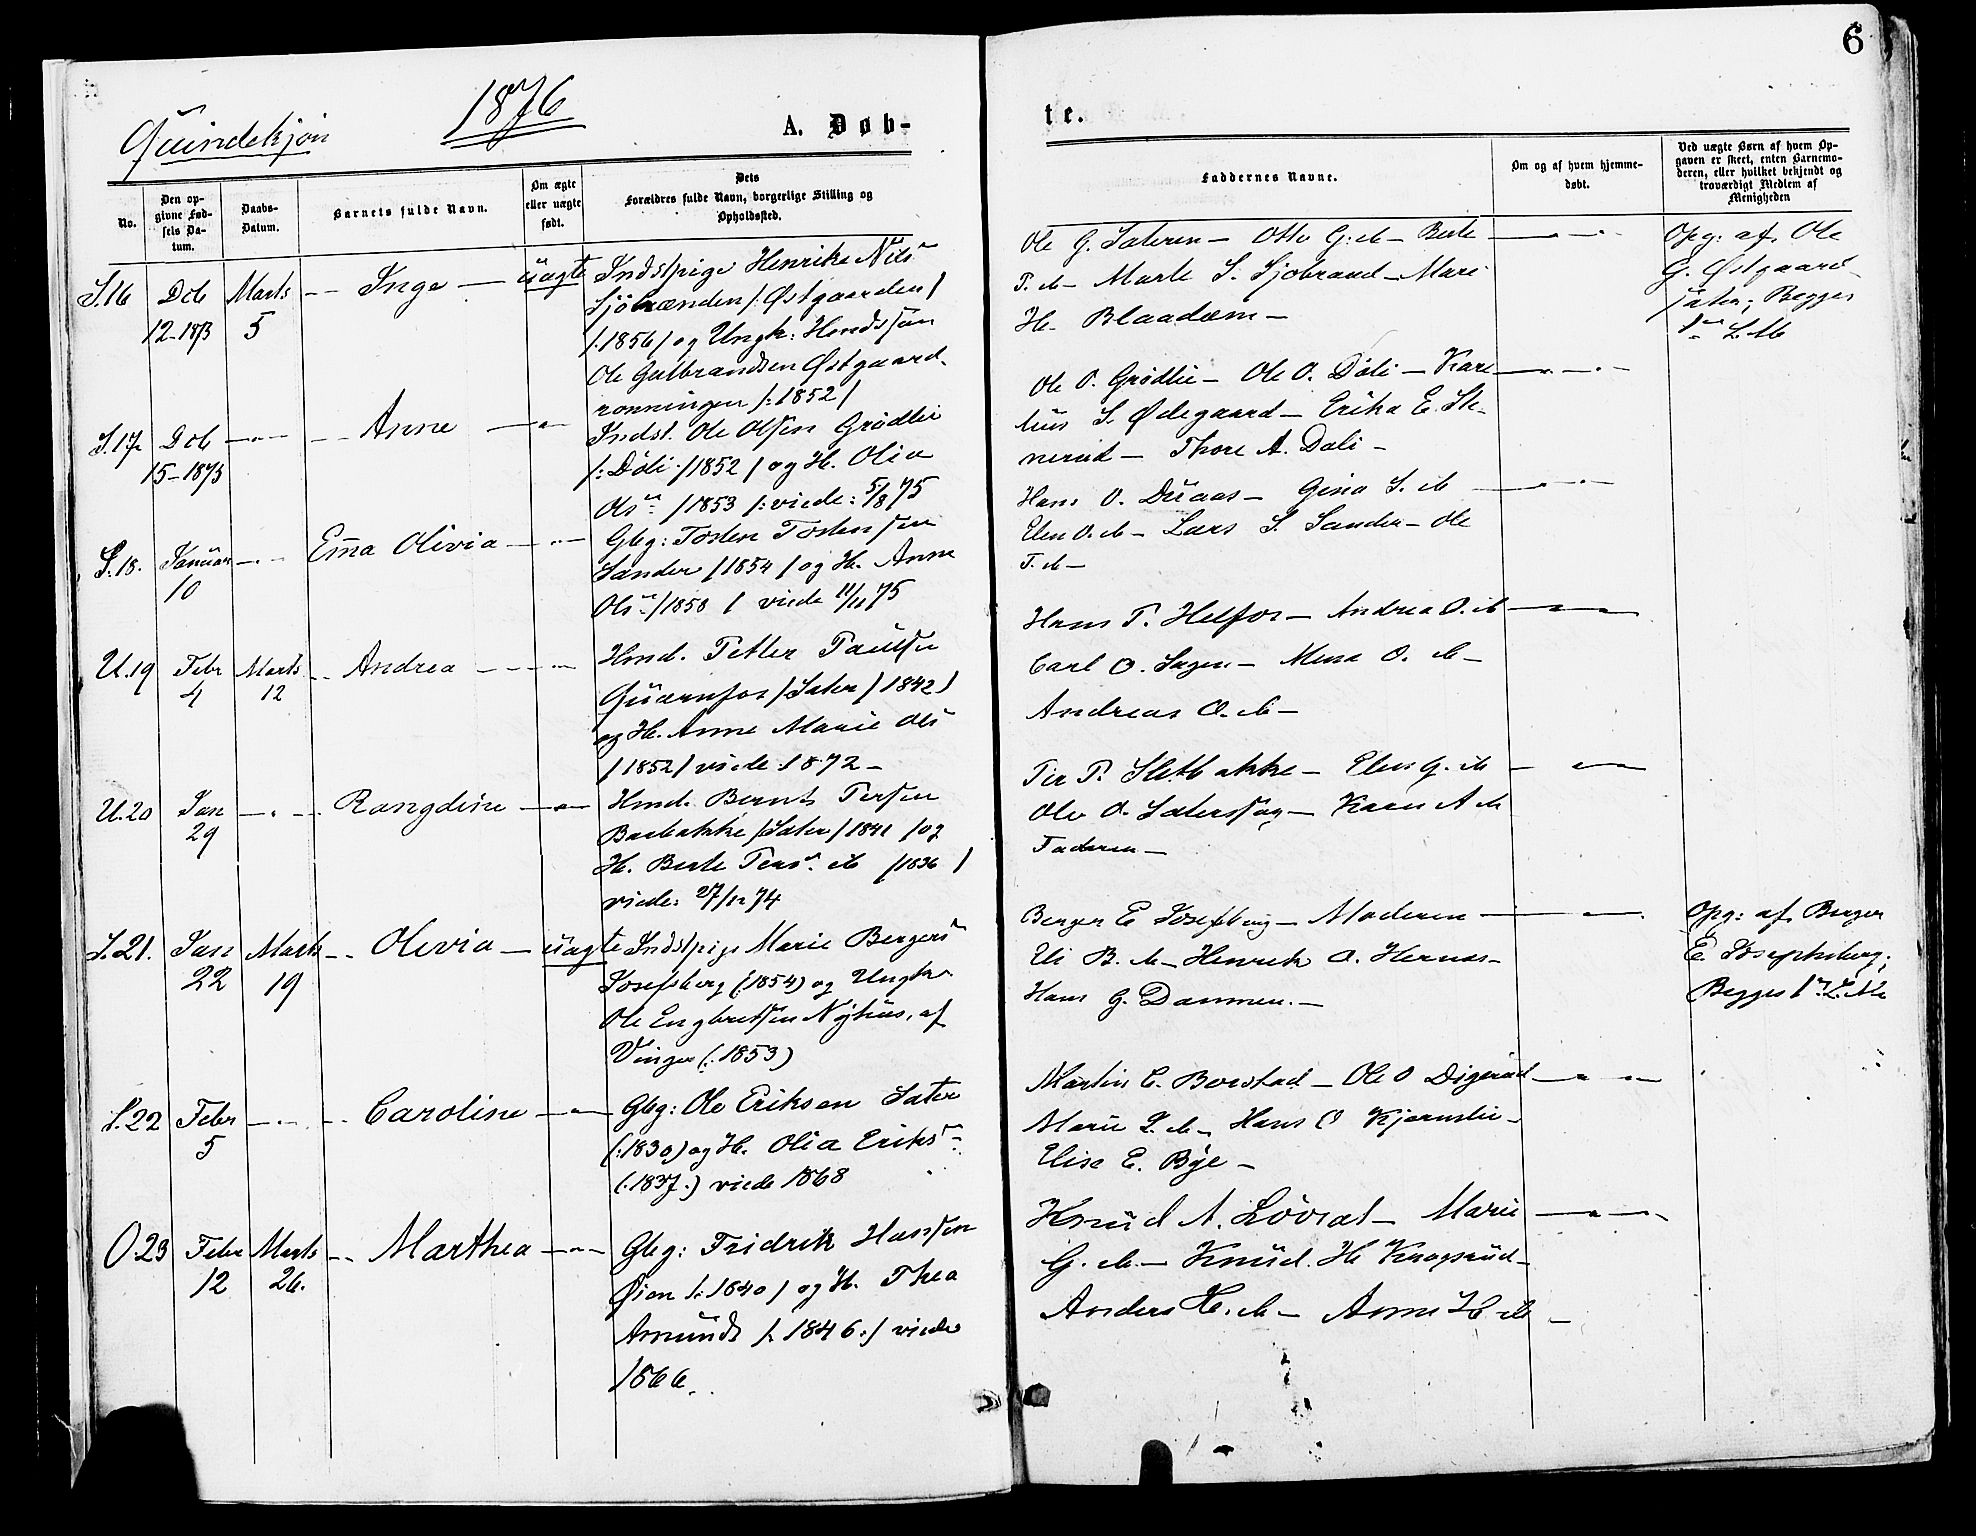 6
1876
Quindekjøn
A. Døb-
te.
No.
Den op-
givne Fød-
sels Da-
tum.
Daabs-
Datum.
Barnets fulde Navn.
Om ægte
eller uægte
født.
Dets
Forældres fulde Navn, borgerlige Stilling og
Opholdssted.
Faddernes Navne.
Om og af hvem hjemme-
døbt.
Ved uægte Børn af hvem Op-
gaven er skeet, enten Barnemo-
deren, eller hvilket bekjendt og
troværdigt Medlem af
Menigheden
S.16 Dcb 12-1873 Marts 5 Inga uægte
Indstpige Henrike Nils
Sjöbrænden /: Østgaarden /
/: 1856 / og Ungk:
Ole Gulbrandsen Østgaard-
rønningen /: 1852 /
Ole G. Sateren - Otto G: ib - Berte
T. ib - Marte S. Sjobrand - Mari
H. Blaadæm -
Opg: af Ole
G. Østgaard-
; Begges
1ste L.M.
S.17 Dcb 15-1875 Anne
Indst. Ole Olsen Grødlie
/: Döli / 1852 / og H. Olia
Ols / 1853 /: viede: 5/8 75
Ole O. Grødlie - Ole O. Döli - Kare
lius S. Ødegaard - Erika E. Ste-
nerud - Thore A. Dali -
S.18. Januar 10 Ema Olivia
Gbg: Tosten Tostensen
Sander / 1854 / og H. Anne
Ols / 1850 / viede 11/11 75
Hans O. Duaas - Gina S. ib
Elen O. ib - Lars S. Sander - Ole
T. ib -
U.19 Febr 4 Marts 12 Andrea
Hmd. Petter Paulsen
Quarnfos / Sater / 1842 /
og H. Anne Marie Ols
/ 1852 / viede 1872 -
Hans P. Helfos - Andrea O. ib
Carl O. Sagen - Mena O. ib -
Andreas O. ib -
U.20 Jan 29 Rangdine
Hmd. Bernt Persen
Barbakke / Sater / 1841 / og
H. Berte Pers. ib / 1836 /
viede: 27/12 74
Per P. Sletbakke - Elen G. ib
Ole O. Saterssag - Karen A ib
Faderen -
S.21. Jan 22 Marts 19 Olivia uægte
Indstpige Marie Bergers
Josefsberg (: 1854) og Ungk.
Ole Engbretsen Nyhus, af
Vinger (: 1853)
Berger E Josefsberg - Moderen
Eli B. ib - Henrik O. Hernes -
Hans G. Dammen. -
Opg: af Berger
E. Josephsberg;
Begges 1ste L.M.
S.22 Febr 5 Caroline
Gbg: Ole Eriksen Sater
(: 1830) og H. Olia Eriks
(: 1837.) viede 1868
Martin C. Borstad - Ole O Digerud
Marie L. ib - Hans O Kjernslie -
Elise E. Bye -
O.23 Febr 12 Marts 26. Marthea
Gbg: Fridrik Hansen
Øien /: 1840 / og H. Thea
Amunds /: 1846 :/ viede
1866.
Knud A. Lövsat - Marie
G. ib. - Knud. H Kragsrud -
Anders H. ib - Anne H ib -